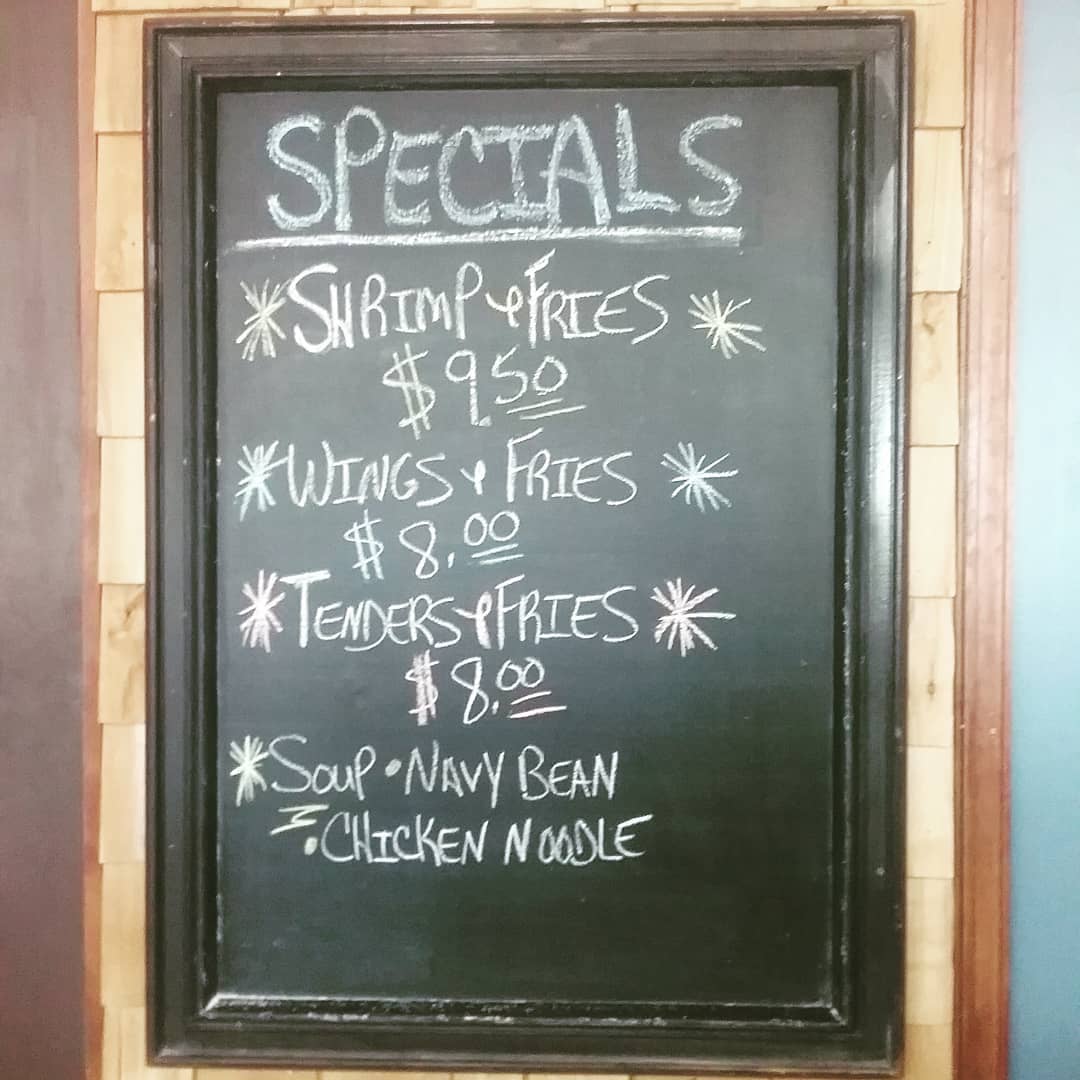 SPECIALS
*SHRIMP & FRIES *
$9.50
*WINGS & FRIES *
$8.00
*TENDERS & FRIES *
$8.00
*SOUP • NAVY BEAN
• CHICKEN NOODLE